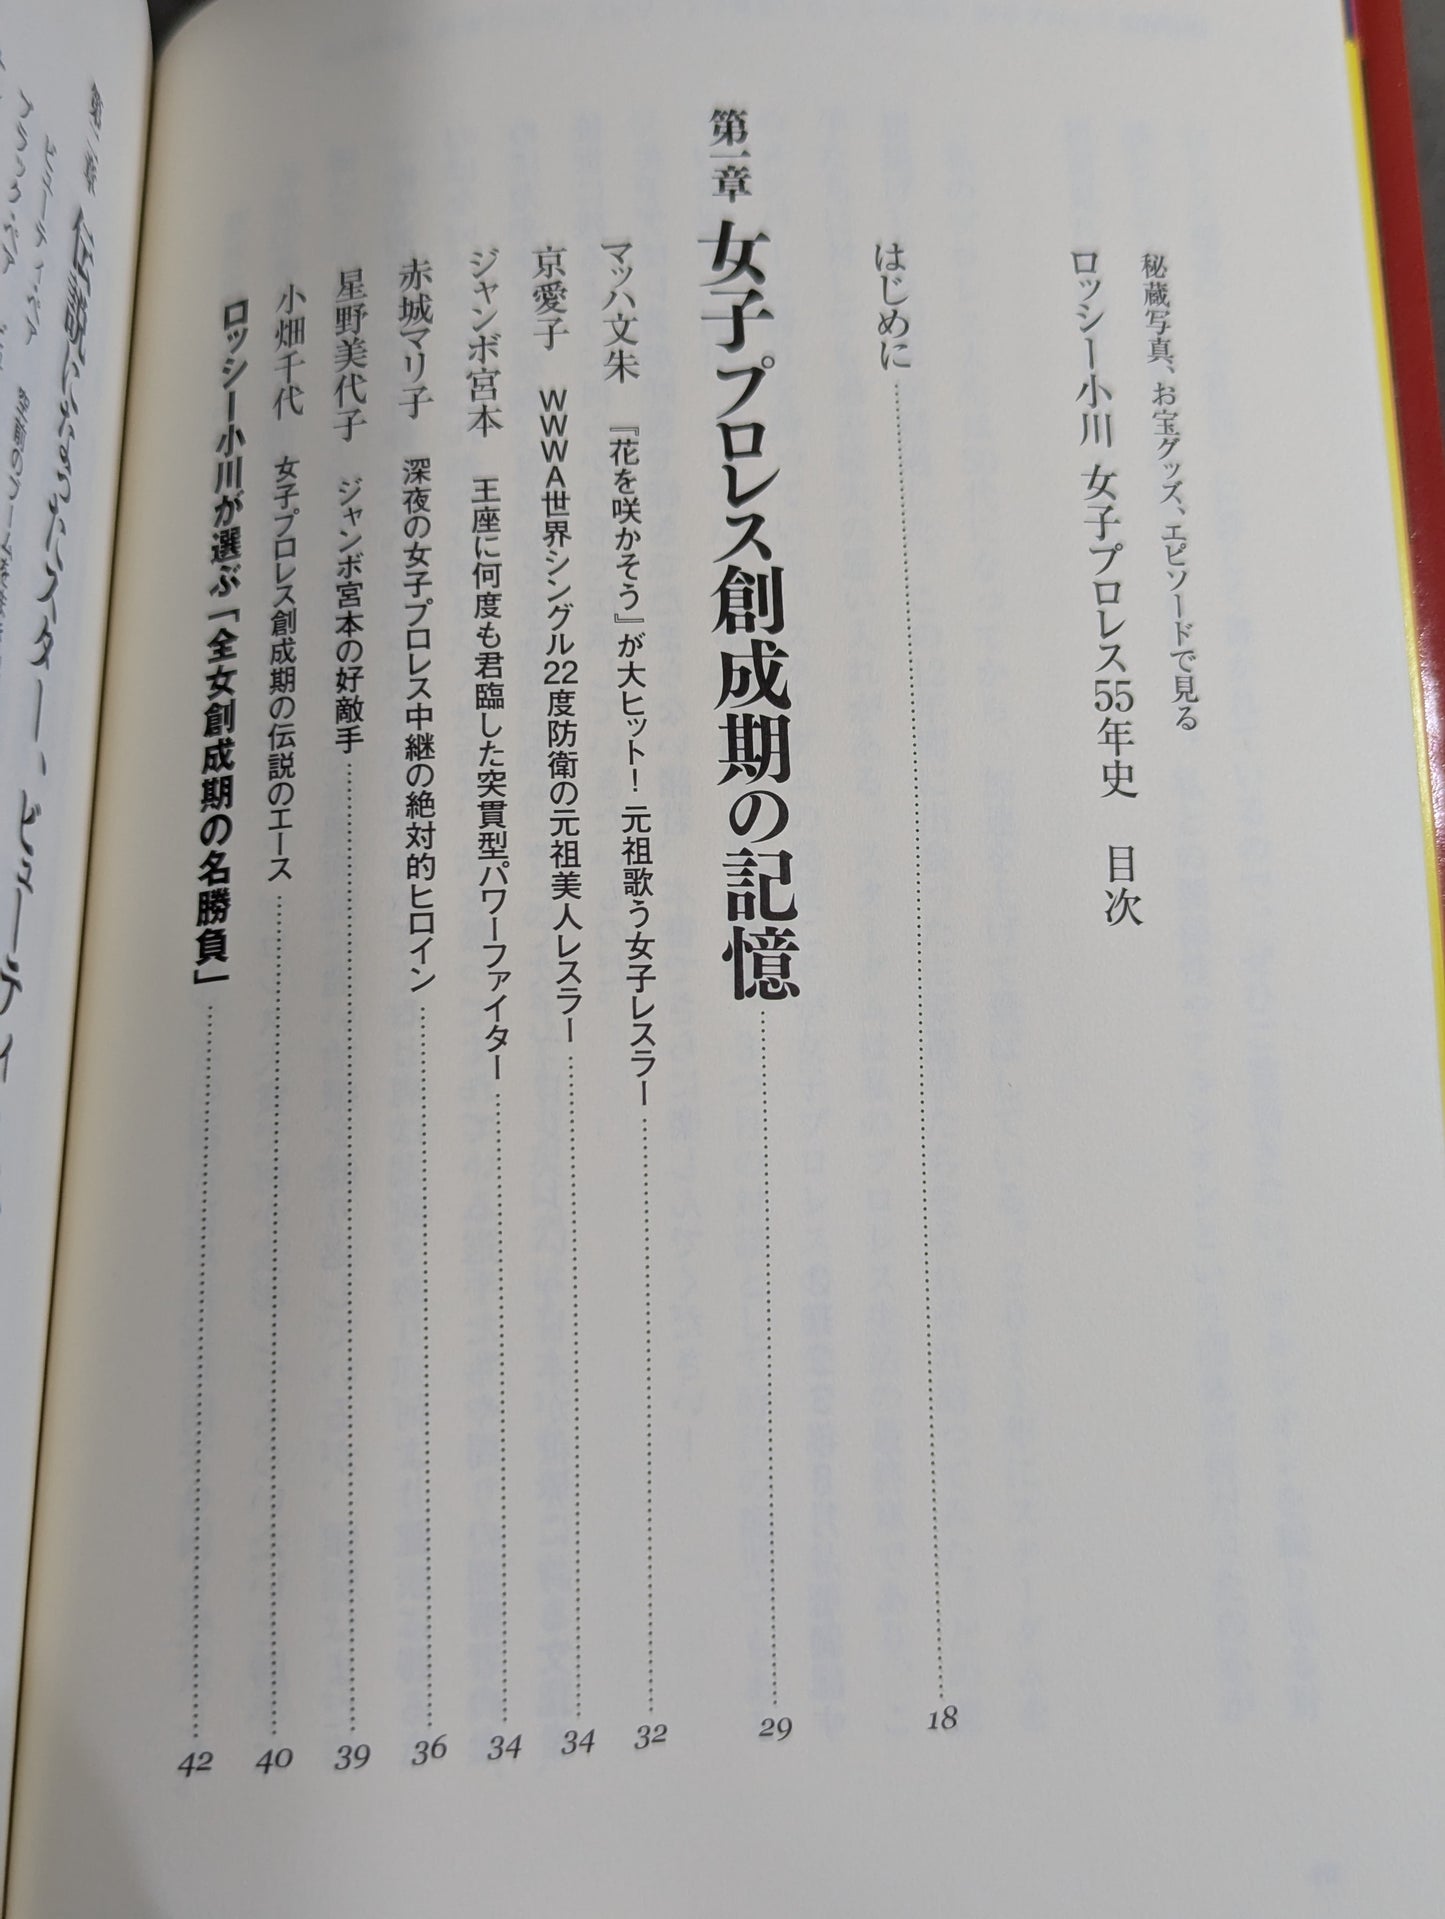 秘蔵写真、お宝グッズ、エピソードで見る
ロッシー小川 女子プロレス55年史 目次
はじめに 18
第一章 女子プロレス創成期の記憶 29
マッハ文朱 『花を咲かそう』が大ヒット！ 元祖歌う女子レスラー 32
京愛子 WWWA世界シングル22度防衛の元祖美人レスラー 34
ジャンボ宮本 王座に何度も君臨した突貫型パワーファイター 34
赤城マリ子 深夜の女子プロレス中継の絶対的ヒロイン 36
星野美代子 ジャンボ宮本の好敵手 39
小畑千代 女子プロレス創成期の伝説のエース 40
ロッシー小川が選ぶ「全女創成期の名勝負」 42
第二章 伝説になったスター、ビューティ
ビューティ・ペア
ブラック・ペア